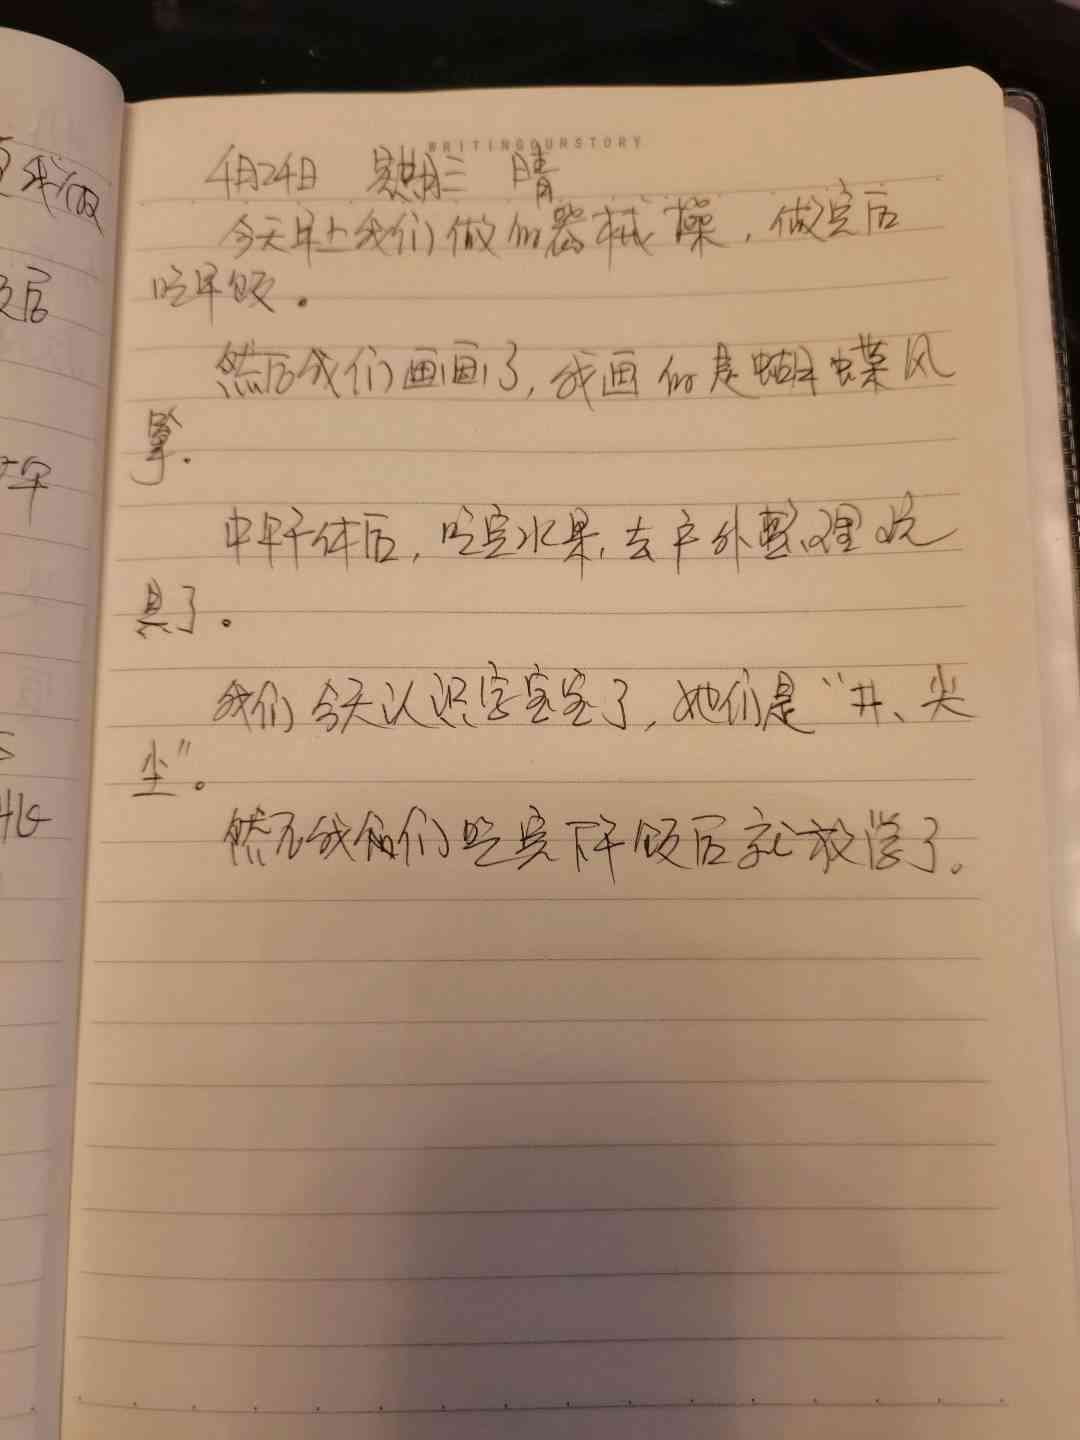 WRITINGOURSTORY
4月24日 星期三 晴
今天早上我们做的器械操，做完后
吃早饭。
然后我们画画了，我画的是蝴蝶风
筝.
中午休后，吃完水果，去户外整理玩
具了。
我们今天认识字宝宝了，她们是“井、尖
尘”。
然后我们吃完下午饭后就放学了。
我做
后
午